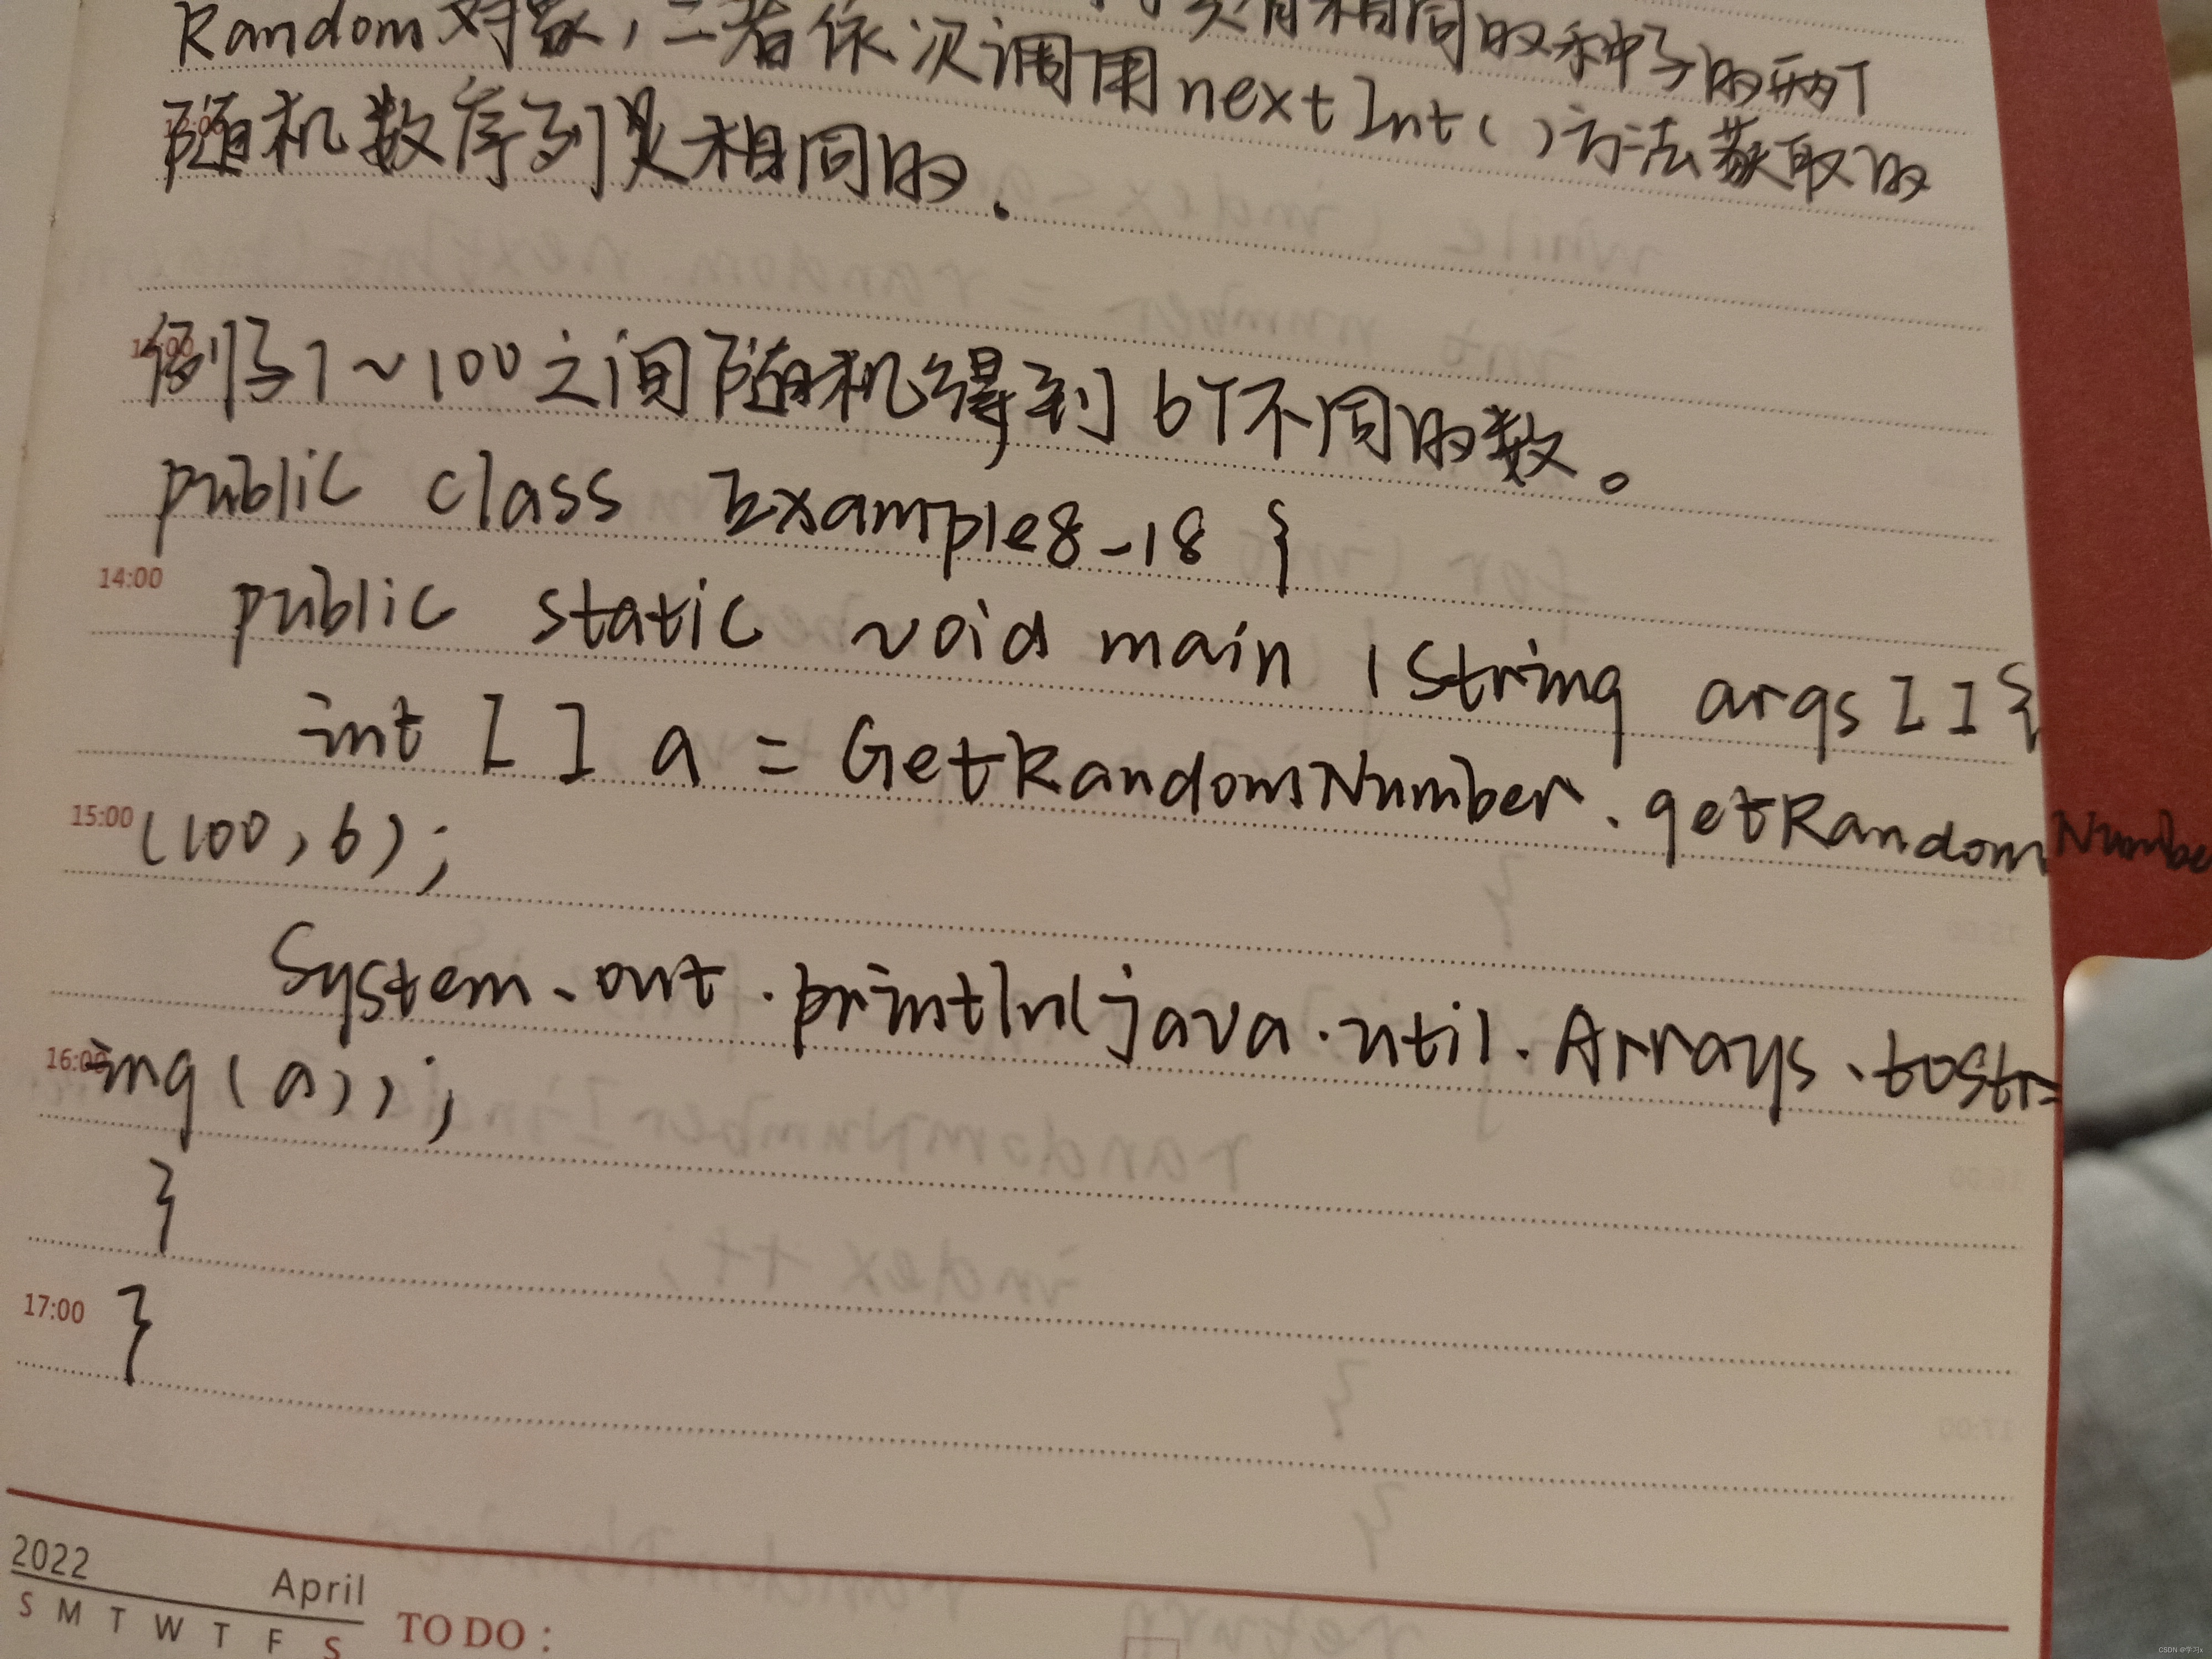 具有相同的种子的两个
Random对象,二者依次调用nextInt()方法获取的
随机数序列是相同的.
例子1~100之间随机得到6个不同的数。
public class Example8_18 {
14:00
public static void main (String args[]{
int [ ] a = GetRandomNumber.getRandomNumbe
15:00 (100,6);
System.out.println(java.util.Arrays.tostr
16:00 ing(a));
}
17:00 }
2022 April
S M T W T F S
TO DO :
CSDN @学习x